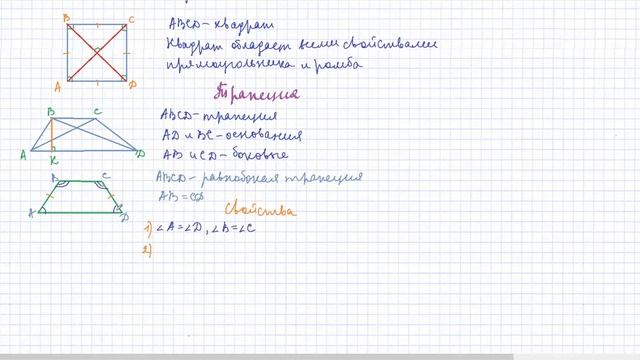 B C
A D
ABCD - квадрат
Квадрат обладает всеми свойствами
прямоугольника и ромба
Трапеция
B C
A K D
ABCD - трапеция
AD и BC - основания
AB и CD - боковые
B C
A D
ABCD - равнобокая трапеция
AB = CD
Свойства
1) ∠A=∠D, ∠B=∠C
2)